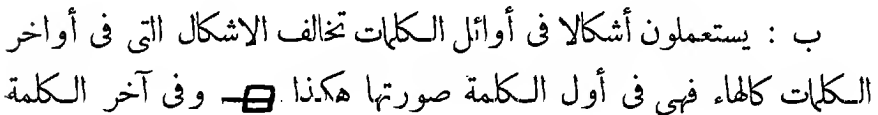 ب : يستعملون أشكالا فى أوائل الكلمات تخالف الاشكال التى فى أواخر
الكلمات كالهاء فهى فى أول الكلمة صورتها هكذا وفى آخر الكلمة